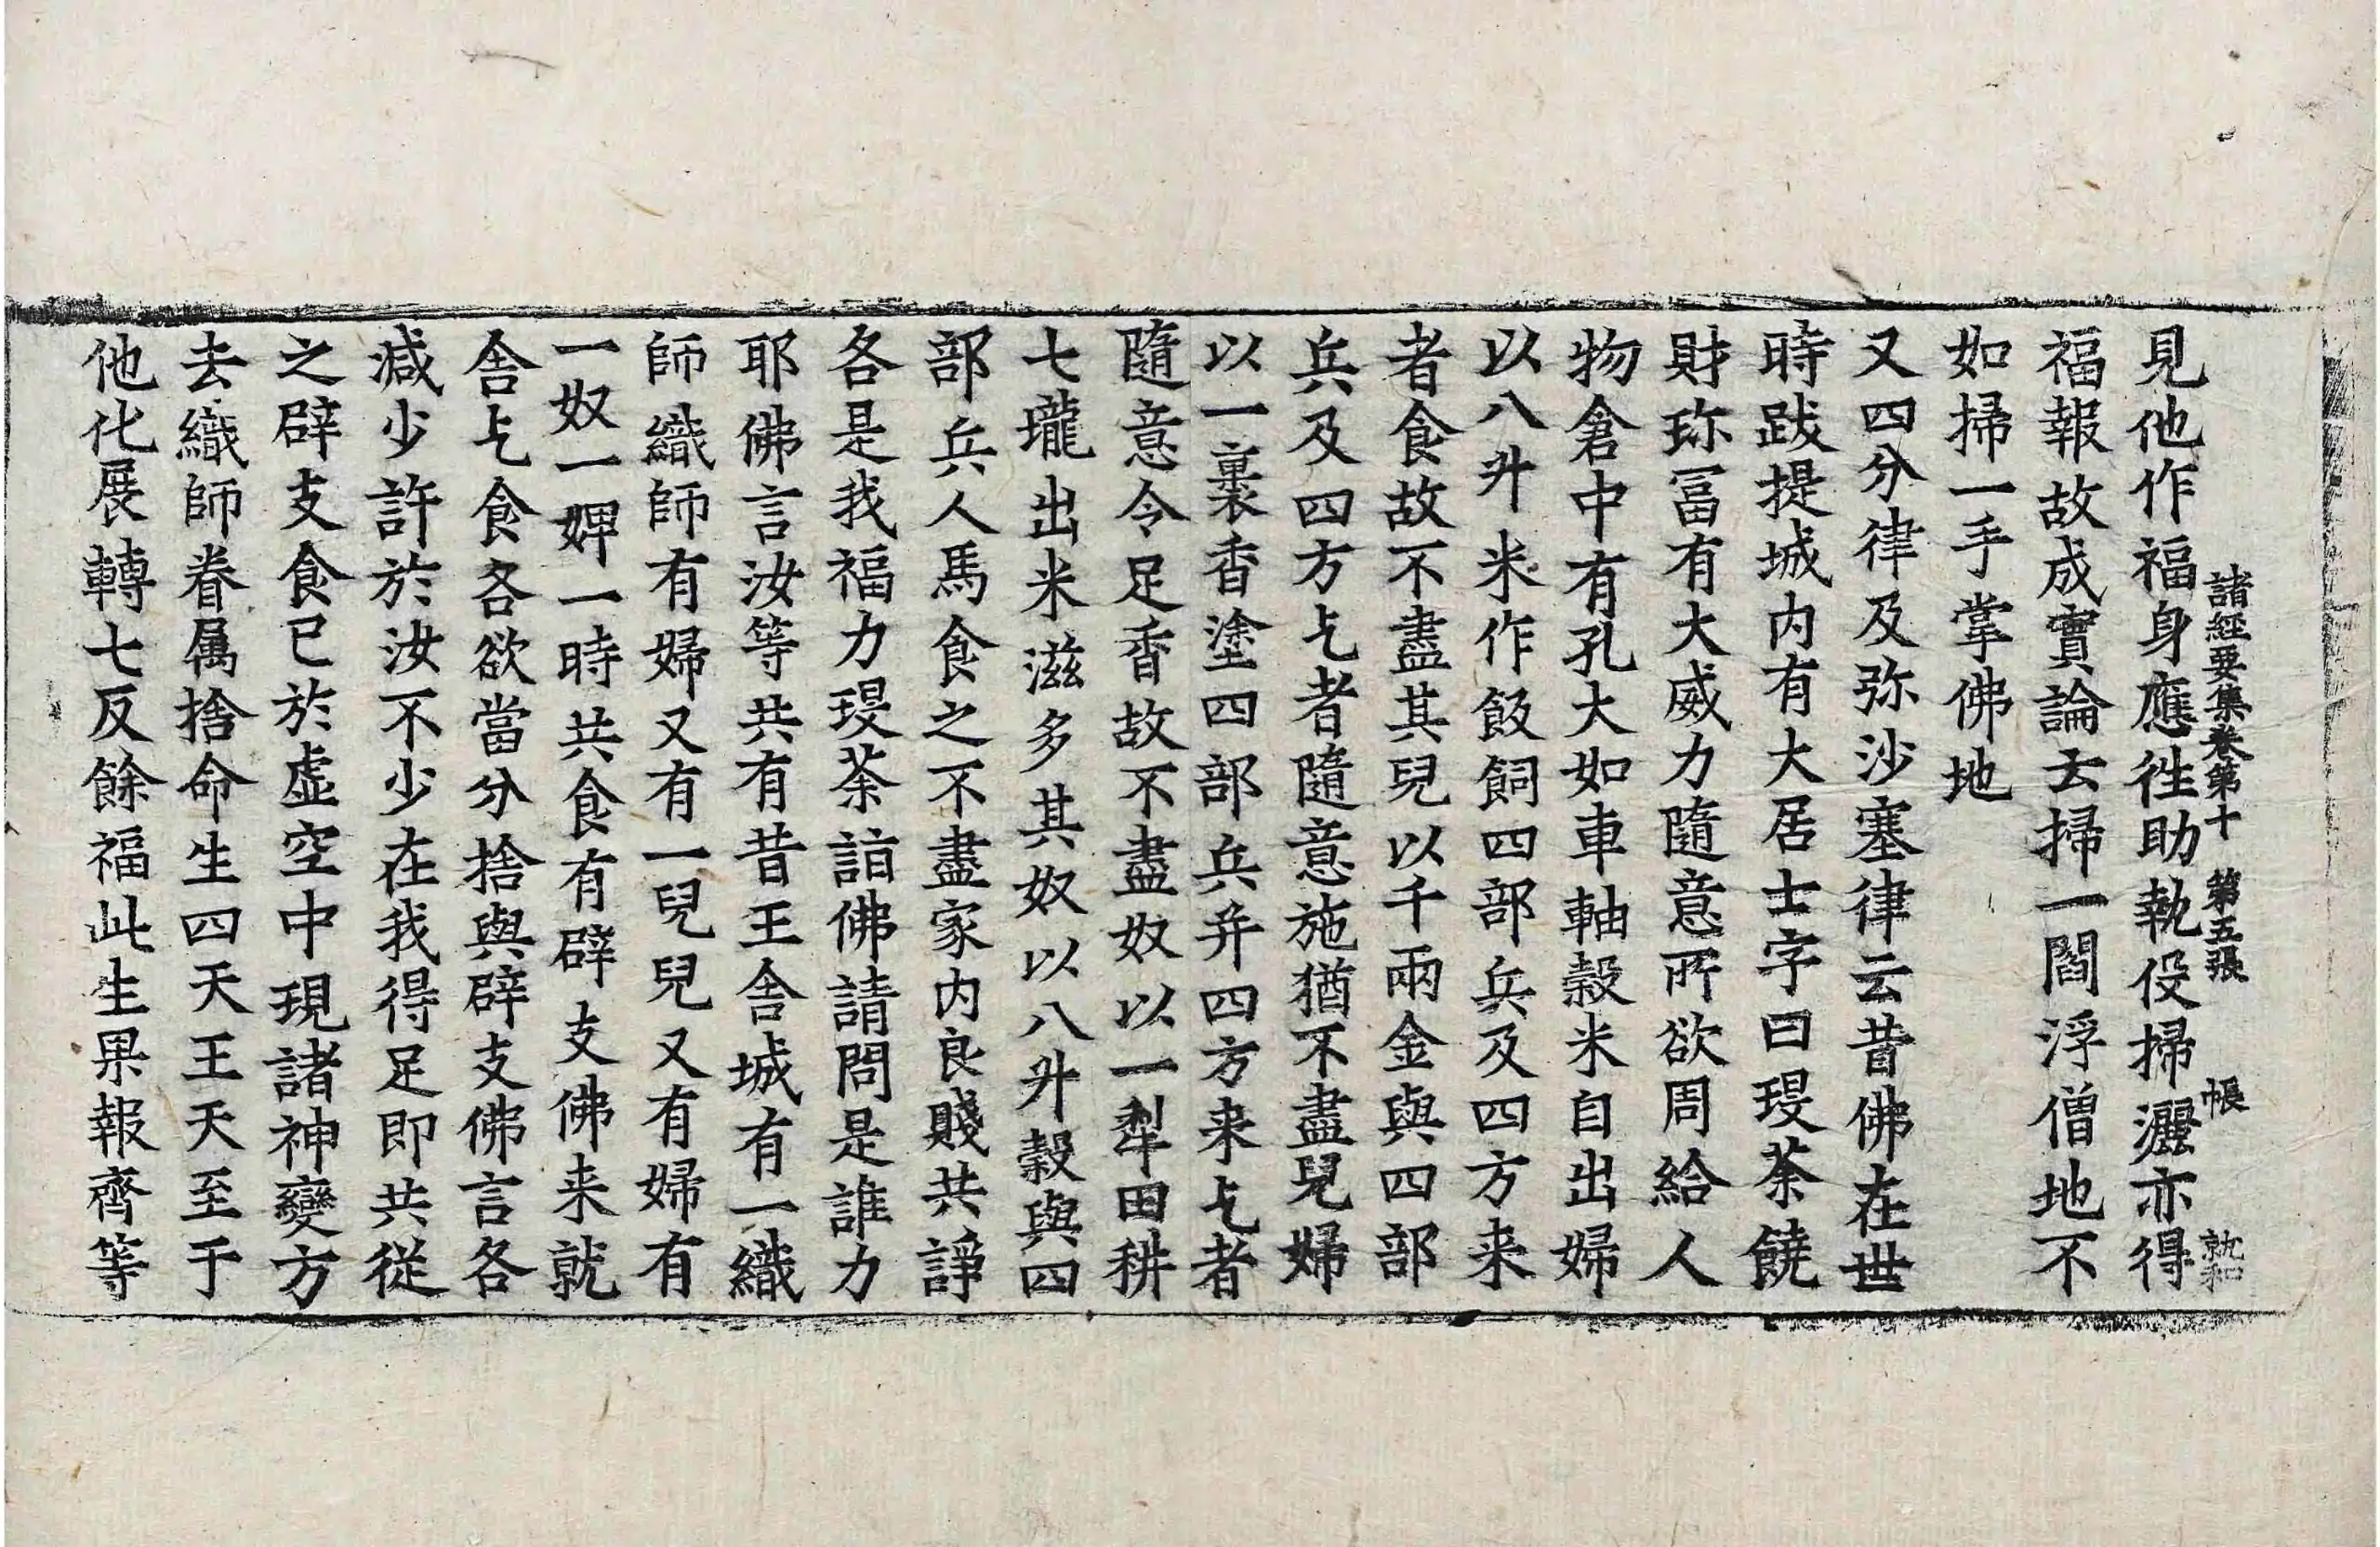 諸經要集卷第十 第五張 帳 就和
見他作福身應徃助執役掃灑亦得
福報故成實論云掃一閻浮僧地不
如掃一手掌佛地
又四分律及弥沙塞律云昔佛在世
時跋提城内有大居士字曰琝荼饒
財珎冨有大威力隨意所欲周給人
物倉中有孔大如車軸穀米自出婦
以八升米作飯飼四部兵及四方来
者食故不盡其兒以千兩金與四部
兵及四方乞者隨意施猶不盡兒婦
以一裹香塗四部兵并四方来乞者
隨意令足香故不盡奴以一犁田耕
七壠出米滋多其奴以八升穀與四
部兵人馬食之不盡家内良賤共諍
各是我福力琝荼詣佛請問是誰力
耶佛言汝等共有昔王舎城有一織
師織師有婦又有一兒兒又有婦有
一奴一婢一時共食有辟支佛来就
舎乞食各欲當分捨與辟支佛言各
減少許於汝不少在我得足即共從
之辟支食已於虚空中現諸神變方
去織師眷属捨命生四天王天至于
他化展轉七反餘福此生果報齊等